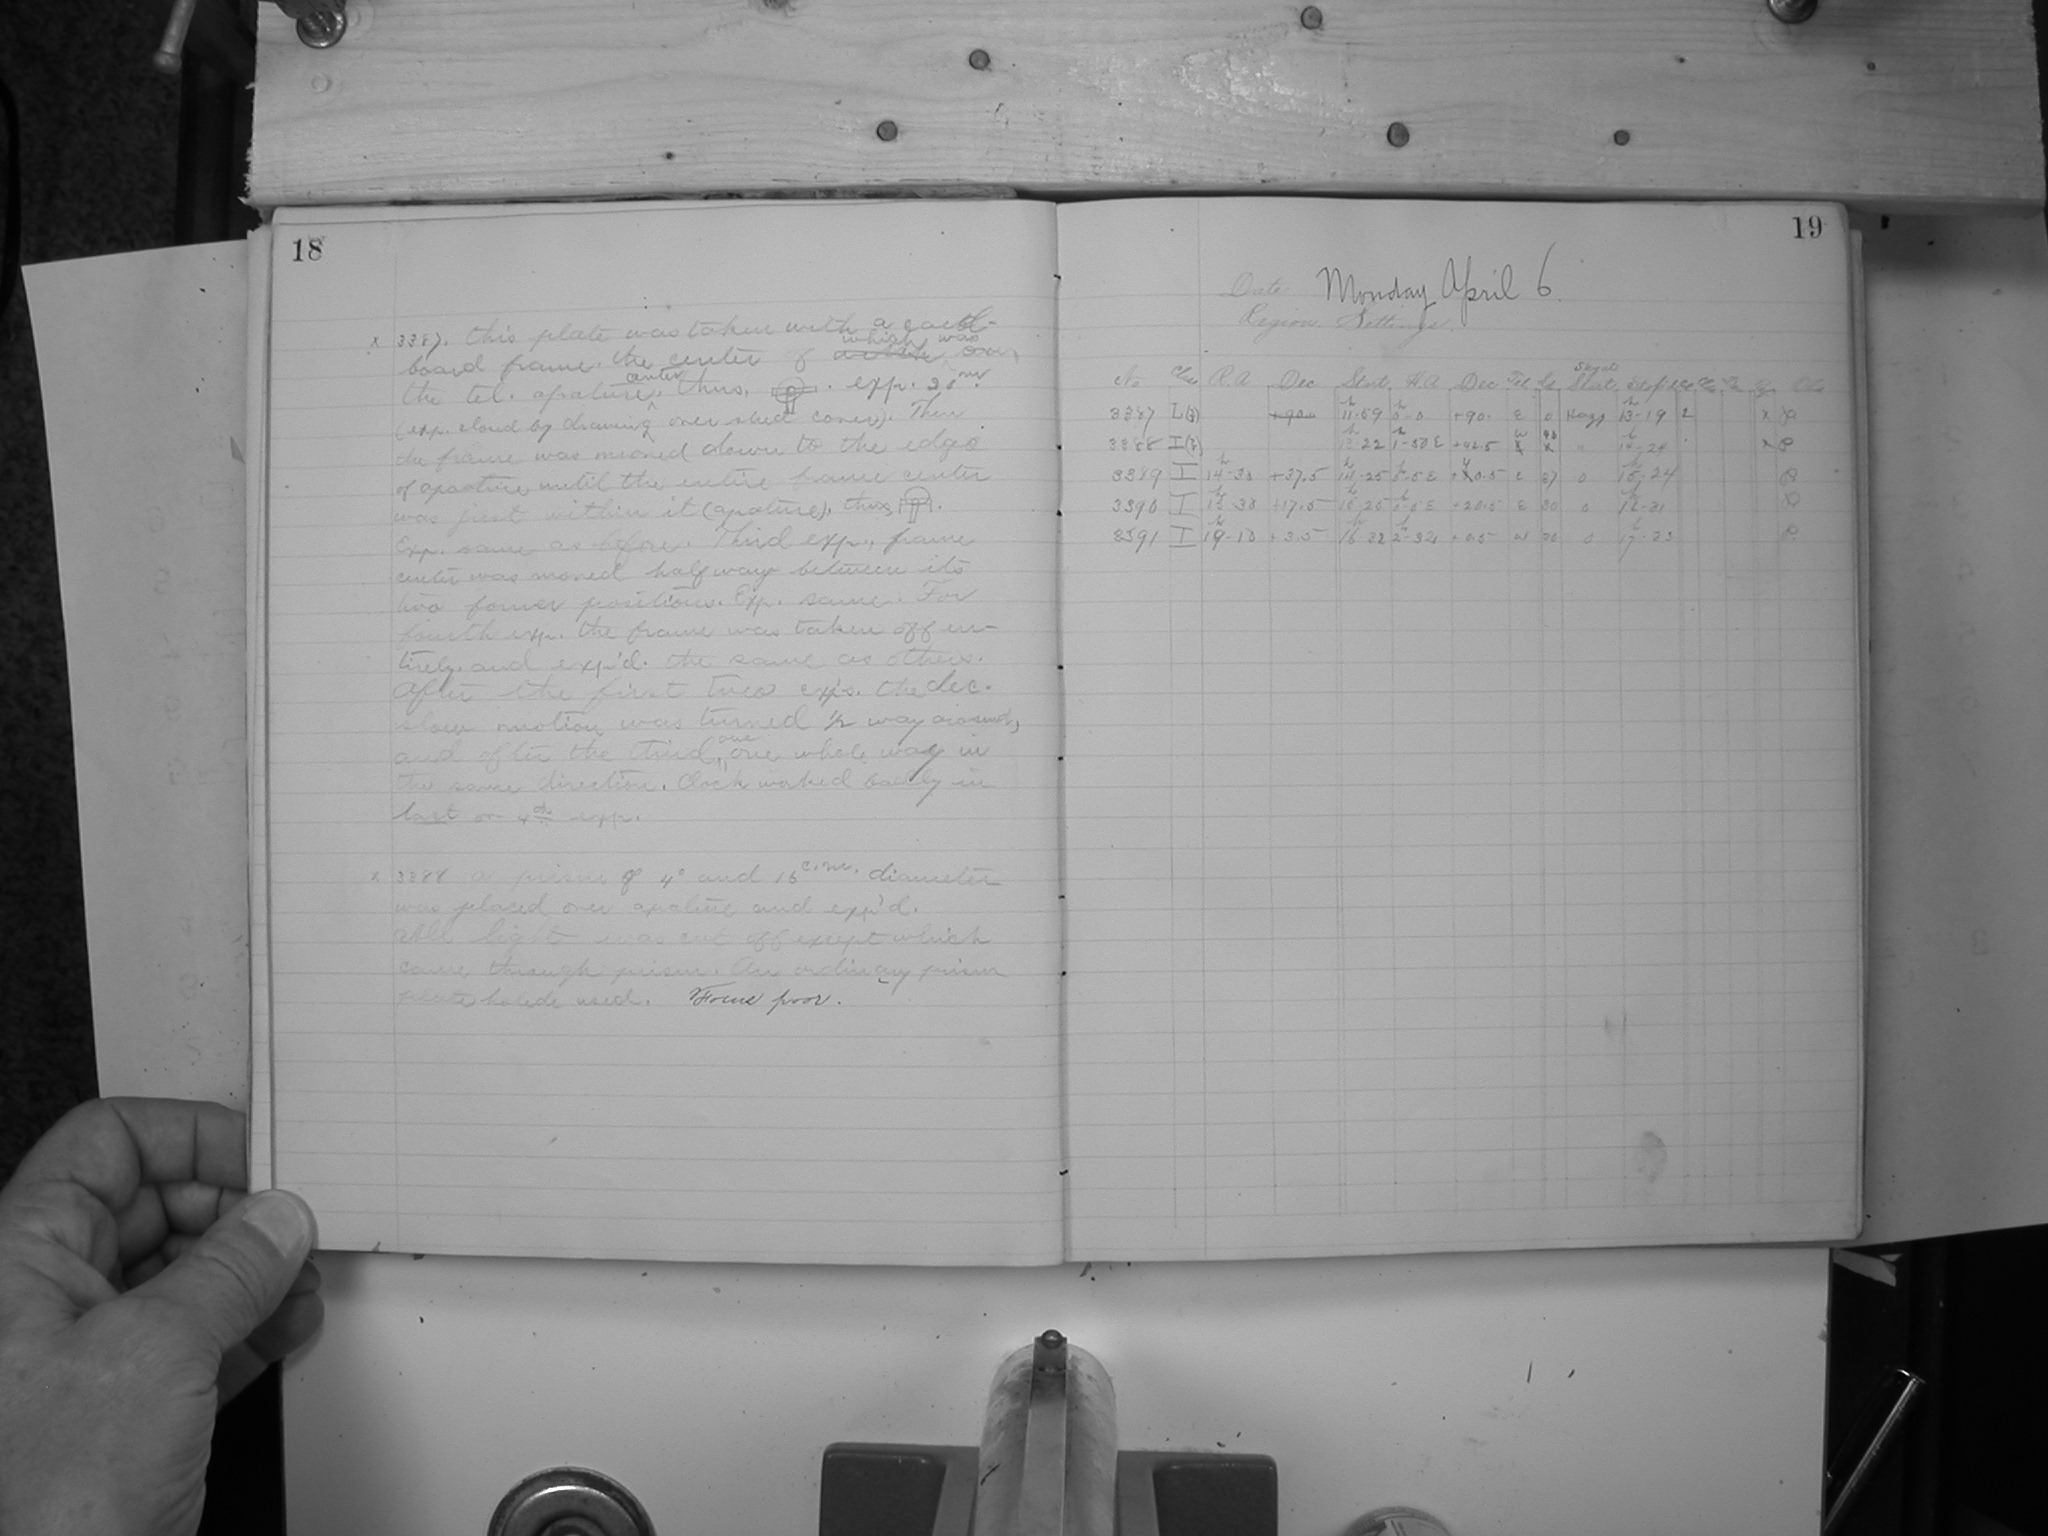 18
x 3387. This plate was taken with a card-
board frame. the center of which was over
the tel. apature center, thus, . exp. 30m.
(exp. closed by drawing over shed cover). Then
the frame was moved down to the edge
of apature until the entire frame center
was just within it (apature), thus, .
Exp. same as before. Third exp., frame
center was moved halfway between its
two former positions. Exp. same. For
fourth exp. the frame was taken off en-
tirely and exp'd. the same as others.
After the first two exps. the dec.
slow motion was turned 1/2 way around,
and after the third one, one whole way in
the same direction. Clock worked badly in
last or 4th exp.
x 3388 a prism of 4° and 15 c.m. diameter
was placed over apature and exp'd.
All light was cut off except which
came through prism. An ordinary prism
plate holder used. Focus poor.
19
Date Monday April 6.
Region. Settings.
No Class R.A Dec Start H.A Dec Tel Sky at Start Exp Obs
3387 L(3) +90.0 11-59 0-0 +90. E 0 Hazy 13-19 2 x
3388 I(3) 13-22 1-50 E +42.5 W 14-24 x
3389 I 14-30 +37.5 14-25 0-5 E +40.5 E 37 0 15-24
3390 I 15-30 +17.5 15-25 0-5 E +20.5 E 30 0 16-31
3391 I 19-10 +3.5 16-32 2-32 +0.5 W 30 0 17-33